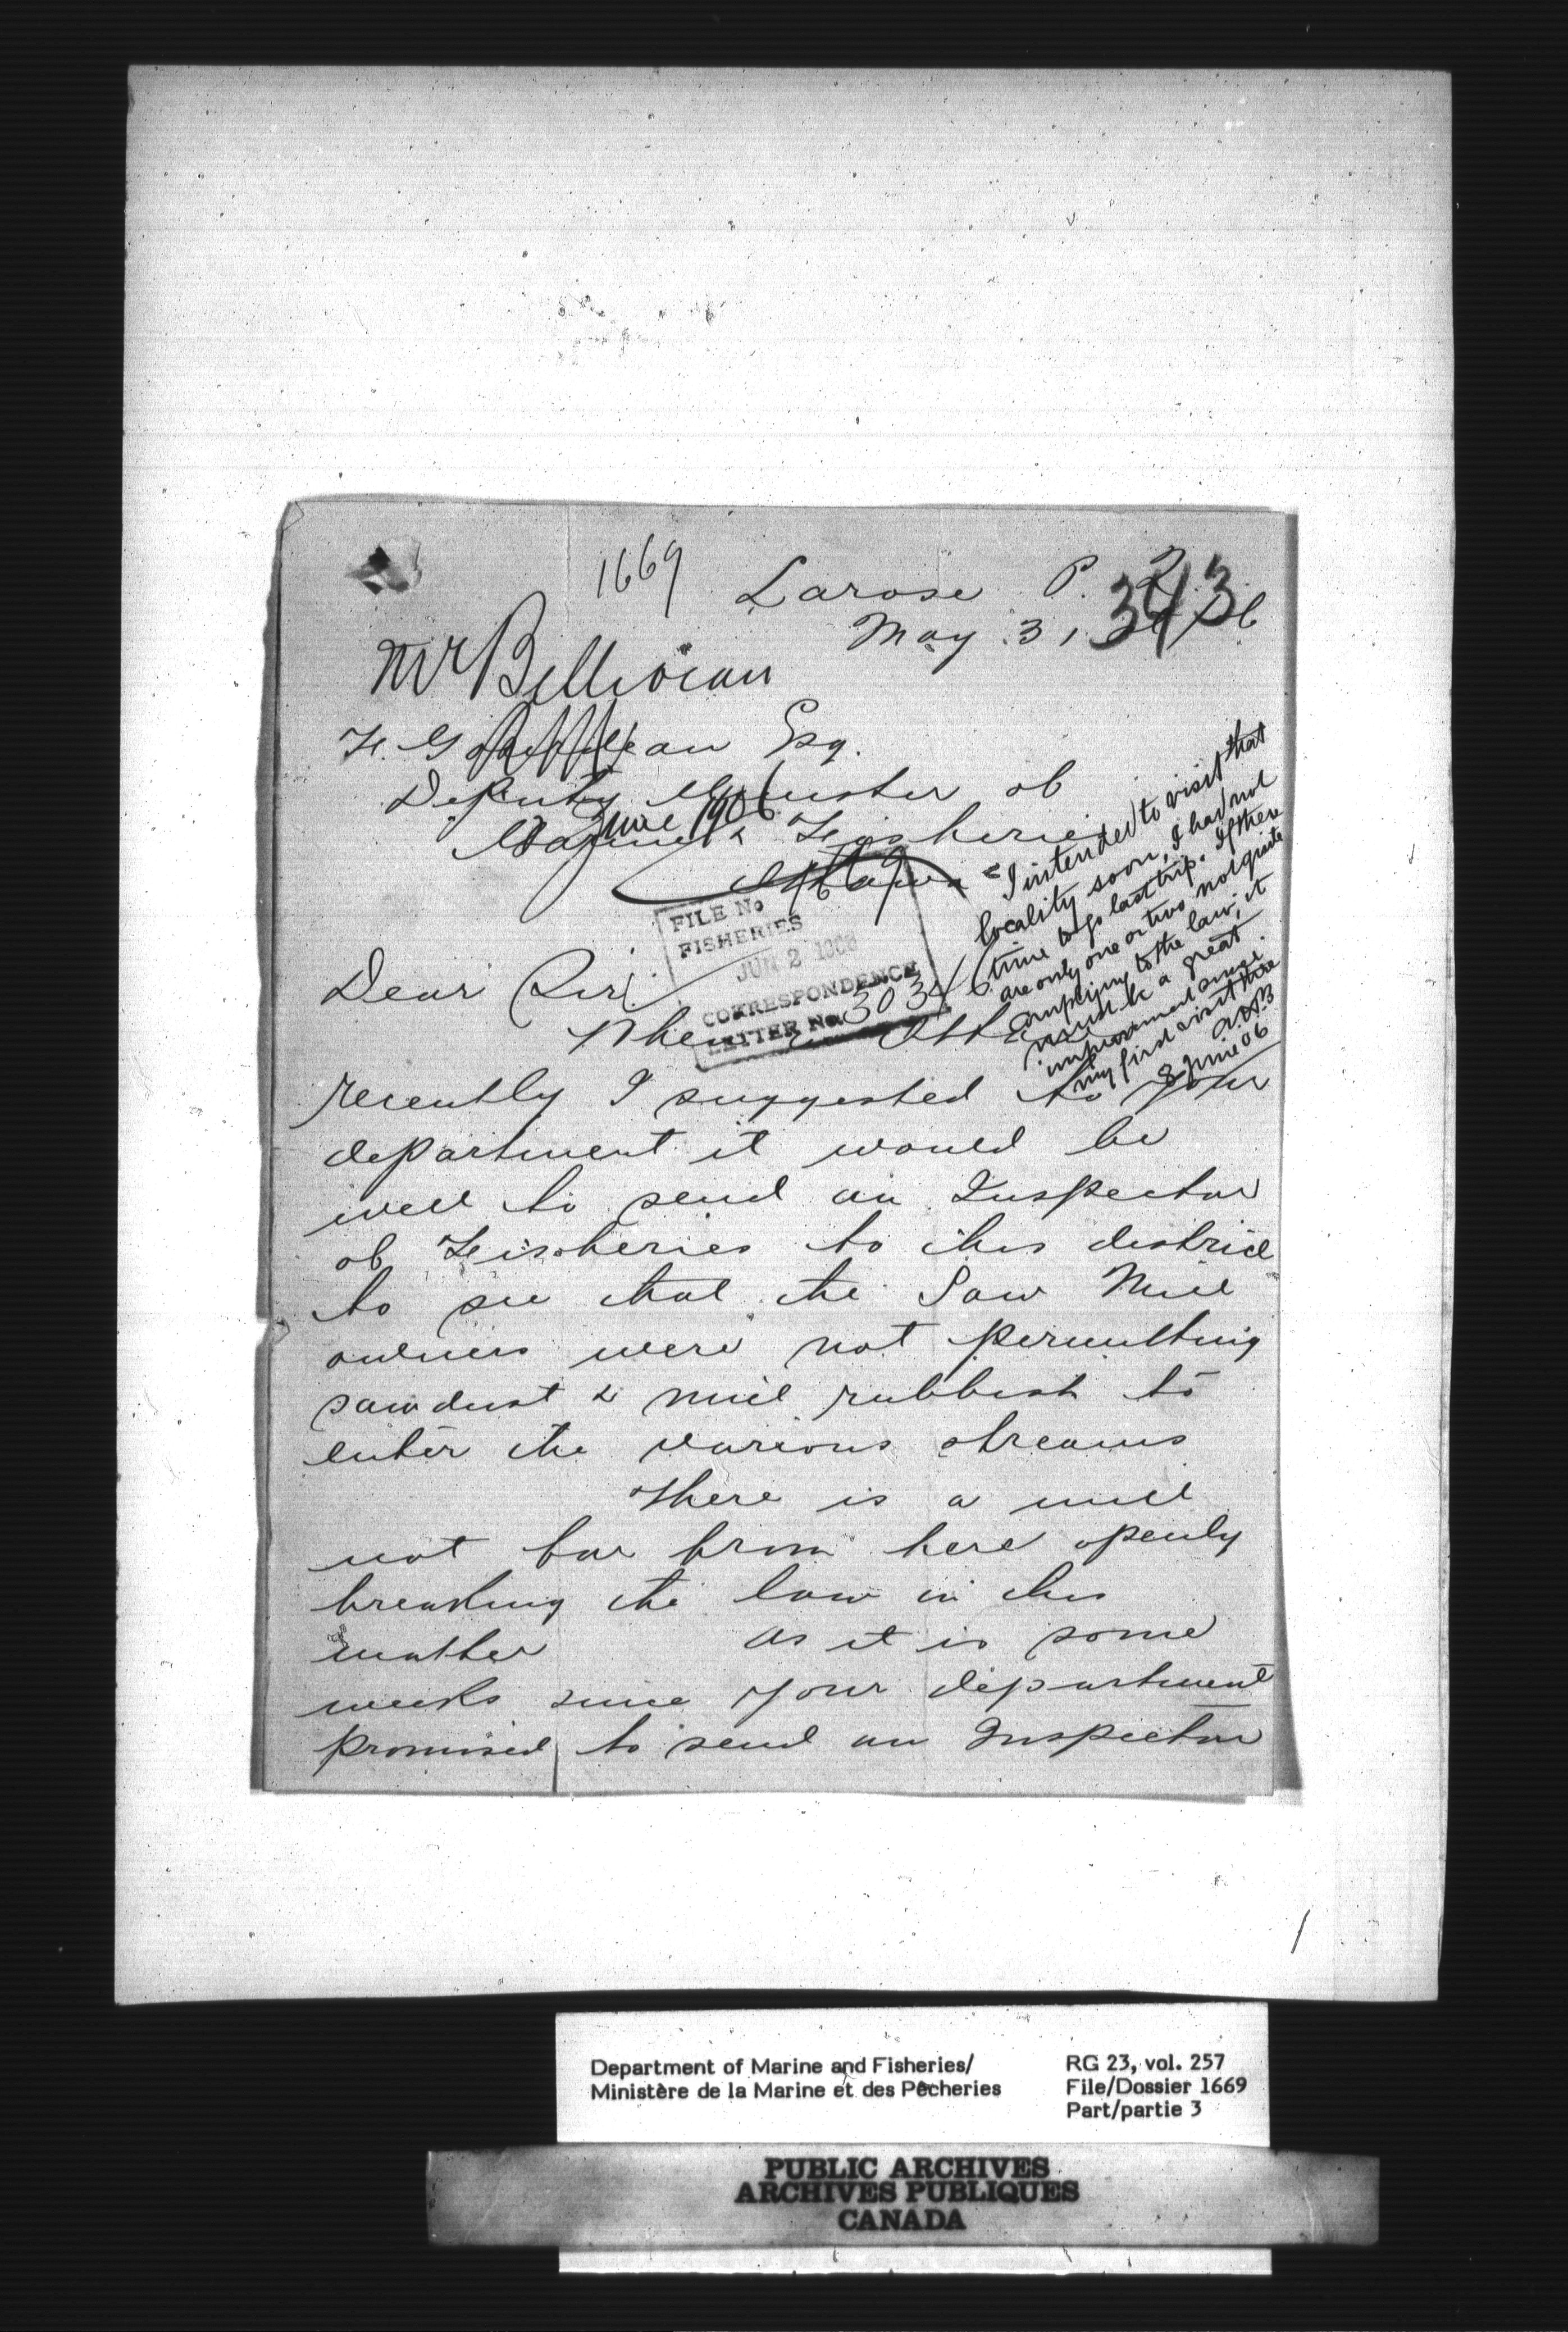 1669
Larose P. Q.
343
May 31,
Mr Belliveau
F. Gourdeau Esq.
Deputy Minister of
June 1906
Marine & Fisheries
Ottawa
1669
"I intended to visit that
locality soon, I had not
time to go last trip. If there
are only one or two not quite
complying to the law, it
must be a great
improvement since
my first visit there
8 June 06
FILE No
FISHERIES
JUN 2 1906
CORRESPONDENCE
LETTER No.
Dear Sir
When in Ottawa
recently I suggested to your
department it would be
well to send an Inspector
of Fisheries to this district
to see that the Saw Mill
owners were not permitting
sawdust & mill rubbish to
enter the various streams
There is a mill
not far from here openly
breaking the law in this
matter as it is some
weeks since your department
promised to send an Inspector
/
Department of Marine and Fisheries/
Ministère de la Marine et des Pêcheries
RG 23, vol. 257
File/Dossier 1669
Part/partie 3
PUBLIC ARCHIVES
ARCHIVES PUBLIQUES
CANADA